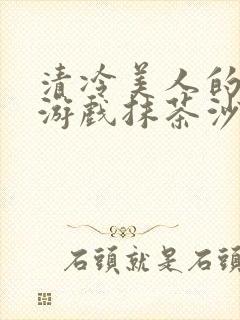 清冷美人的
游戏抹茶沙
石頭就是石頭